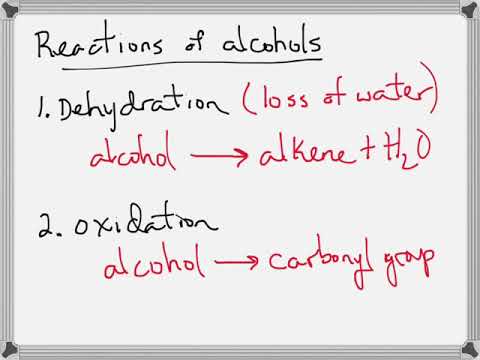 Reactions of alcohols
1. Dehydration (loss of water)
alcohol → alkene + H₂O
2. Oxidation
alcohol → carbonyl group